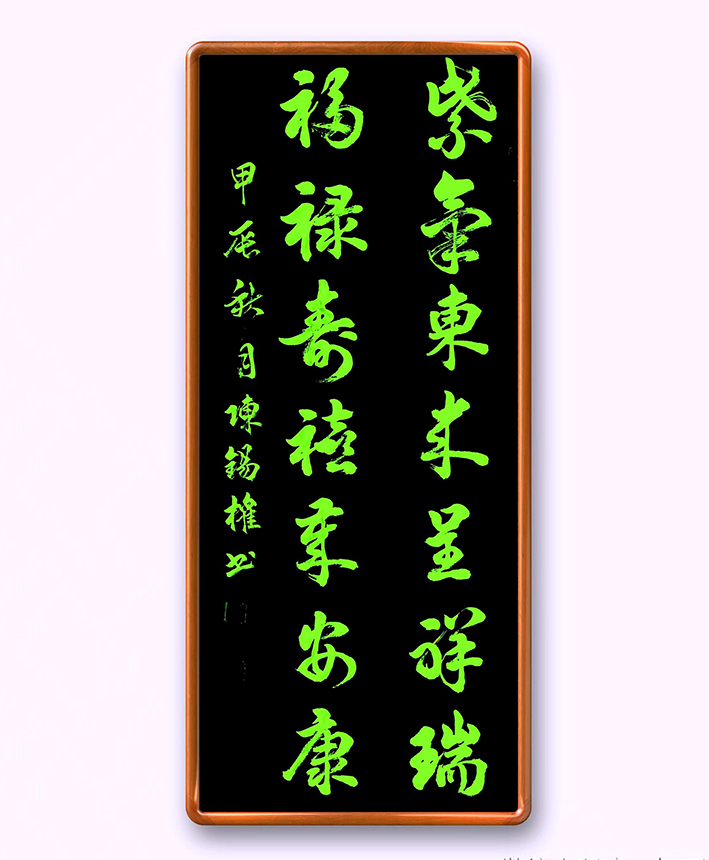 紫氣東来呈祥瑞
福禄寿禧安康
甲辰秋月陳錫權书